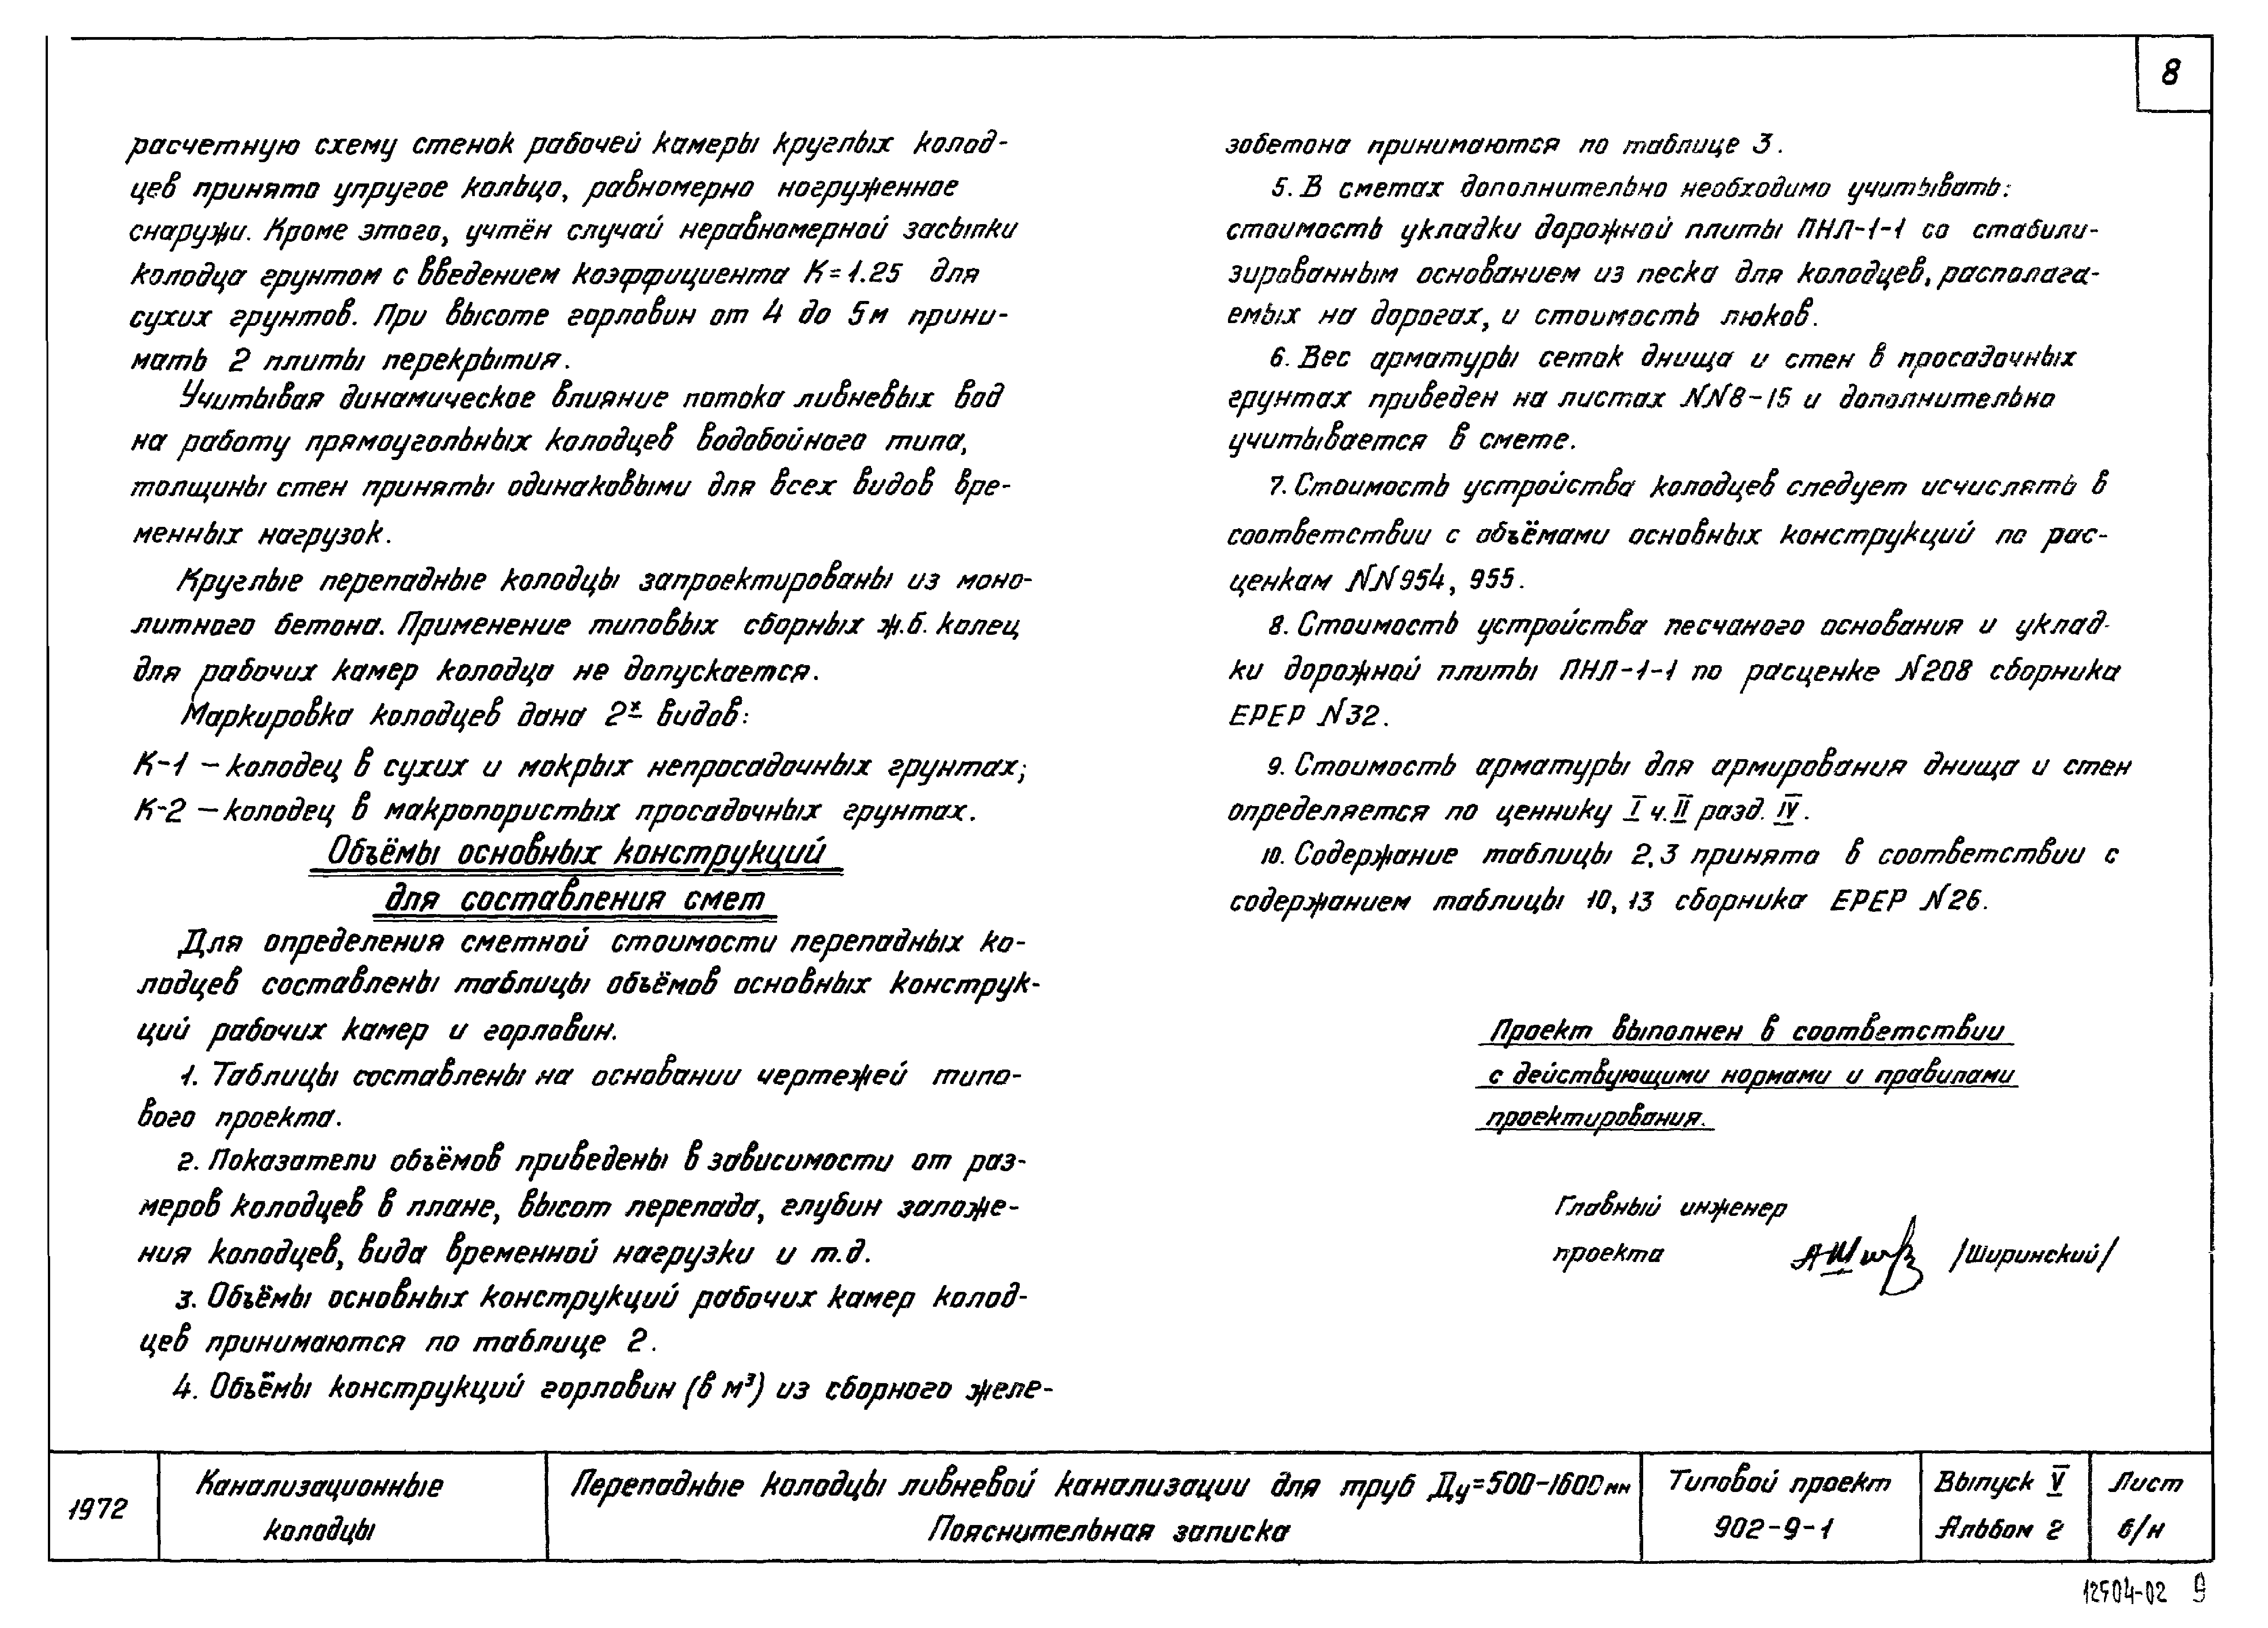 8
расчетную схему стенок рабочей камеры круглых колод-
цев принято упругое кольцо, равномерно нагруженное
снаружи. Кроме этого, учтён случай неравномерной засыпки
колодца грунтом с введением коэффициента К=1.25 для
сухих грунтов. При высоте горловин от 4 до 5м прини-
мать 2 плиты перекрытия.
Учитывая динамическое влияние потока ливневых вод
на работу прямоугольных колодцев водобойного типа,
толщины стен приняты одинаковыми для всех видов вре-
менных нагрузок.
Круглые перепадные колодцы запроектированы из моно-
литного бетона. Применение типовых сборных ж.б. колец
для рабочих камер колодца не допускается.
Маркировка колодцев дана 2х видов:
К-1 – колодец в сухих и мокрых непросадочных грунтах;
К-2 – колодец в макропористых просадочных грунтах.
Объёмы основных конструкций
для составления смет
Для определения сметной стоимости перепадных ко-
лодцев составлены таблицы объёмов основных конструк-
ций рабочих камер и горловин.
1. Таблицы составлены на основании чертежей типо-
вого проекта.
2. Показатели объёмов приведены в зависимости от раз-
меров колодцев в плане, высот перепада, глубин заложе-
ния колодцев, вида временной нагрузки и т.д.
3. Объёмы основных конструкций рабочих камер колод-
цев принимаются по таблице 2.
4. Объёмы конструкций горловин (в м³) из сборного желе-
зобетона принимаются по таблице 3.
5. В сметах дополнительно необходимо учитывать:
стоимость укладки дорожной плиты ПНЛ-1-1 со стабили-
зированным основанием из песка для колодцев, располага-
емых на дорогах, и стоимость люков.
6. Вес арматуры сеток днища и стен в просадочных
грунтах приведен на листах NN8-15 и дополнительно
учитывается в смете.
7. Стоимость устройства колодцев следует исчислять в
соответствии с объёмами основных конструкций по рас-
ценкам NN954, 955.
8. Стоимость устройства песчаного основания и уклад-
ки дорожной плиты ПНЛ-1-1 по расценке N208 сборника
ЕРЕР N32.
9. Стоимость арматуры для армирования днища и стен
определяется по ценнику I ч. II разд. IV.
10. Содержание таблицы 2,3 принято в соответствии с
содержанием таблицы 10, 13 сборника ЕРЕР N26.
Проект выполнен в соответствии
с действующими нормами и правилами
проектирования.
Главный инженер
проекта /Ширинский/
1972
Канализационные
колодцы
Перепадные колодцы ливневой канализации для труб Ду=500-1600мм
Пояснительная записка
Типовой проект
902-9-1
Выпуск V
Альбом 2
Лист
б/н
12504-02 9